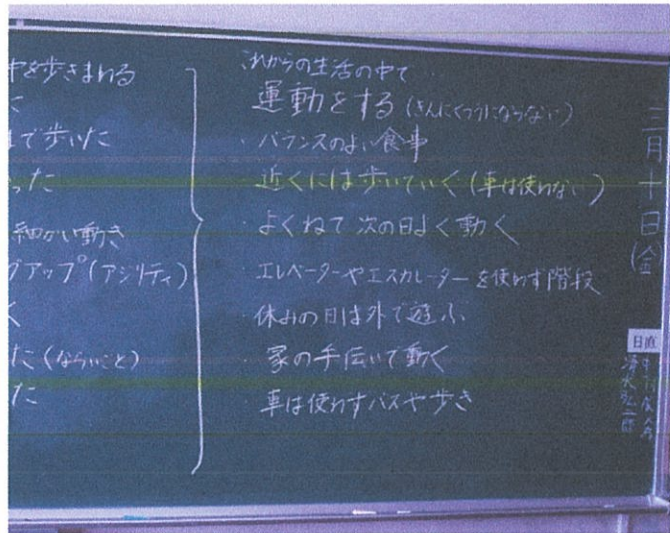 中を歩きまわる
く
まで歩いた
った
細かい動き
グアップ(アジリティ)
く
た(ならいごと)
た
これからの生活の中で…
運動をする(きんにくつうにならない)
・バランスのよい食事
・近くには歩いていく(車は使わない)
・よくねて次の日よく動く
・エレベーターやエスカレーターを使わず階段
・休みの日は外で遊ぶ
・家の手伝いで動く
・車は使わずバスや歩き
三月十日(金)
日直